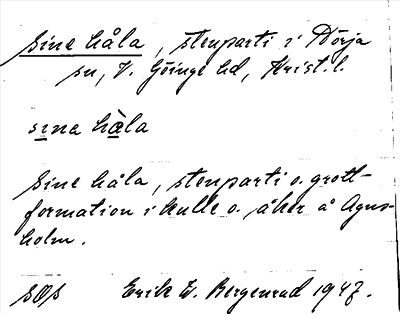 Sine håla, stenparti i Nörja
sn, V. Göinge hd, Krist. l.
sina hàla
Sine håla, stenparti o. grott-
formation i kulle o. åker å Agus-
holm.
SOS Erik W. Bergenrud 1947.